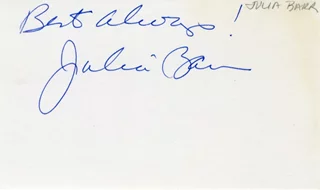 JULIA BARR
Best always!
Julia Barr